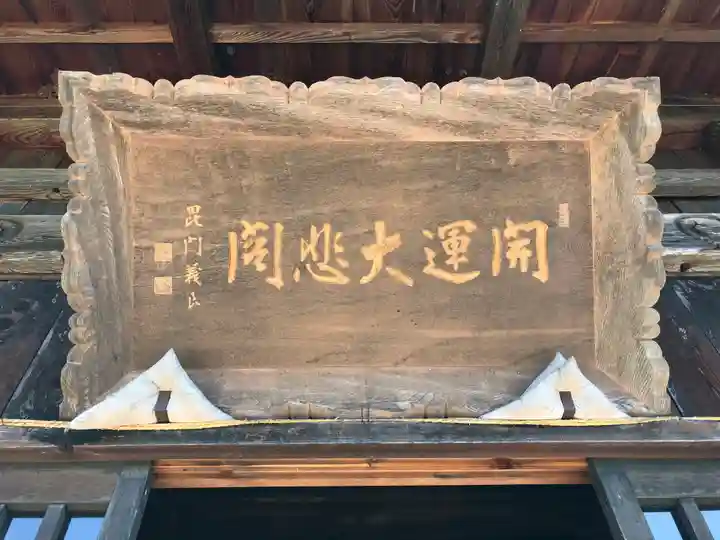 開運大悲閣
毘門義民